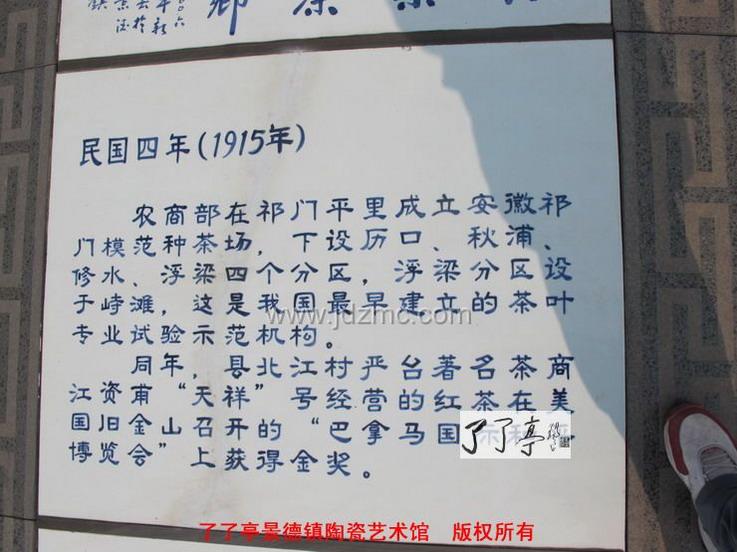 茶
乡
民国四年(1915年)
农商部在祁门平里成立安徽祁
门模范种茶场，下设历口、秋浦、
修水、浮梁四个分区，浮梁分区设
于峙滩，这是我国最早建立的茶叶
专业试验示范机构。
同年，县北江村严台著名茶商
江资甫“天祥”号经营的红茶在美
国旧金山召开的“巴拿马国
博览会”上获得金奖。
www.jdzmc.com
了了亭
了了亭景德镇陶瓷艺术馆 版权所有